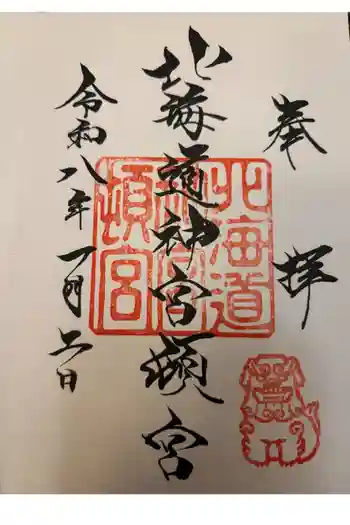 奉拝
北海道神宮頓宮
令和八年一月日
北海道
神宮
頓宮